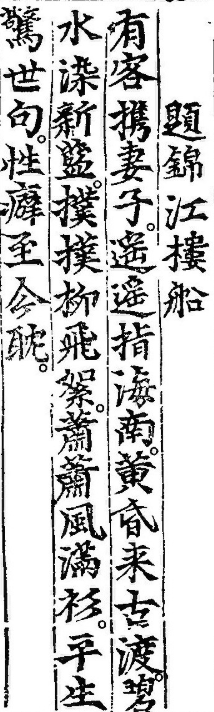 題錦江樓船
有客携妻子。遥遥指海南。黄昏来古渡。碧
水染新藍。撲撲柳飛絮。蕭蕭風滿衫。平生
驚世句。性癖至今耽。